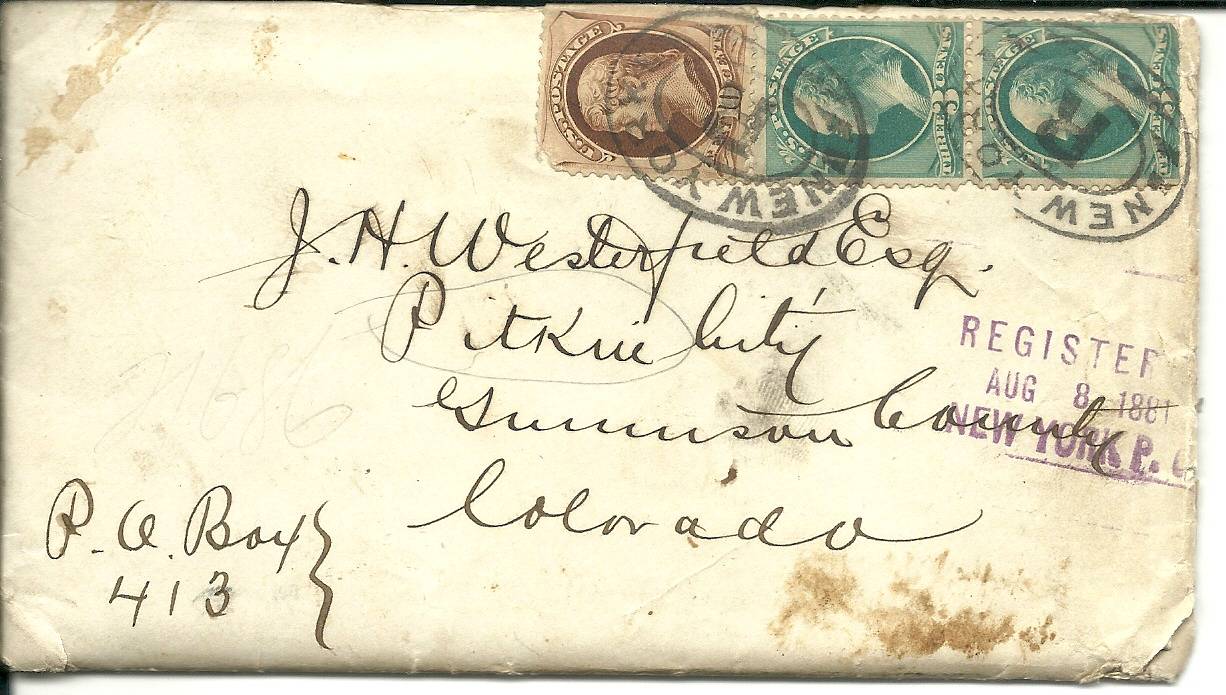 U.S. POSTAGE
U.S. POSTAGE THREE 3 CENTS
U.S. POSTAGE THREE 3 CENTS
NEW YO
NEW
R
J. H. Westerfield Esq.
Pitkin City
Gunnison County
Colorado
REGISTER
AUG 8 1881
NEW YORK P.
P. O. Box
413